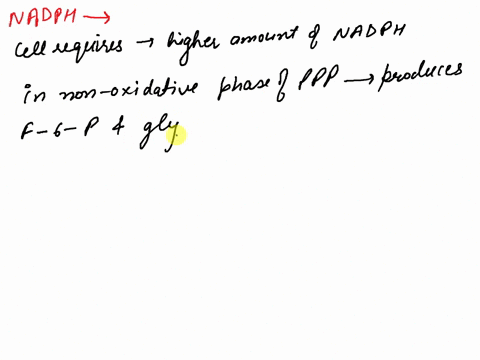 NADPH →
Cell requires → higher amount of NADPH
in non-oxidative phase of PPP → produces
F-6-P & gly